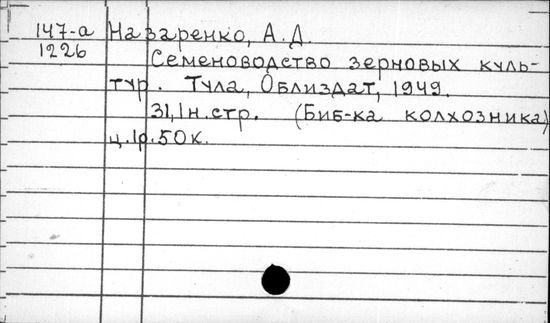 147-а Назаренко, А.Д.
1226
Семеноводство зерновых куль-
тур. Тула, Облиздат, 1949.
31,1н.стр. (Биб-ка колхозника)
ц.1р.50к.